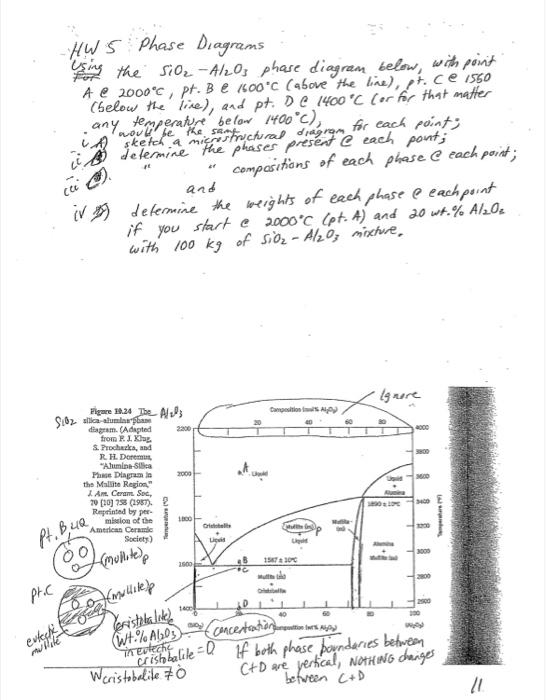 HW 5 Phase Diagrams
Using the SiO2 - Al2O3 phase diagram below, with point
A @ 2000°C, pt. B @ 1600°C (above the line), pt. C @ 1560
(below the line), and pt. D @ 1400°C (or for that matter
any temperature below 1400°C),
would be the same
i A) sketch a microstructural diagram for each point;
ii B) determine the phases present @ each point;
iii C) " " compositions of each phase @ each point;
and
iv D) determine the weights of each phase @ each point
if you start @ 2000°C (pt. A) and 20 wt.% Al2O3
with 100 kg of SiO2 - Al2O3 mixture.
Ignore
SiO2
Al2O3
Figure 10.24 The
silica-alumina phase
diagram. (Adapted
from F. J. Klug,
S. Prochazka, and
R. H. Doremus,
"Alumina-Silica
Phase Diagram in
the Mullite Region,"
J. Am. Ceram. Soc.,
70 [10] 758 (1987).
Reprinted by per-
mission of the
American Ceramic
Society.)
Composition (mol% Al2O3)
20 40 60 80
2200
2000
1800
1600
1400
Temperature (°C)
4000
3800
3600
3400
3200
3000
2800
2600
Temperature (°F)
A
Liquid
Liquid
+
Alumina
1890 ± 10°C
Cristobalite
+
Liquid
Mullite (ss) p
+
Liquid
Mullite
(ss)
Alumina
+
Mullite (ss)
B
C
1587 ± 10°C
Mullite (ss)
+
Cristobalite
D
0 20 40 60 80 100
(SiO2)
Composition (wt% Al2O3)
(Al2O3)
concentration
Pt. B
LIQ
(mullite)p
Pt. C
(mullite)p
eutectic
mullite
(cristobalite)
Wt.% Al2O3
in eutectic
cristobalite = 0
W cristobalite ≠ 0
If both phase boundaries between
C+D are vertical, NOTHING changes
between C+D
11